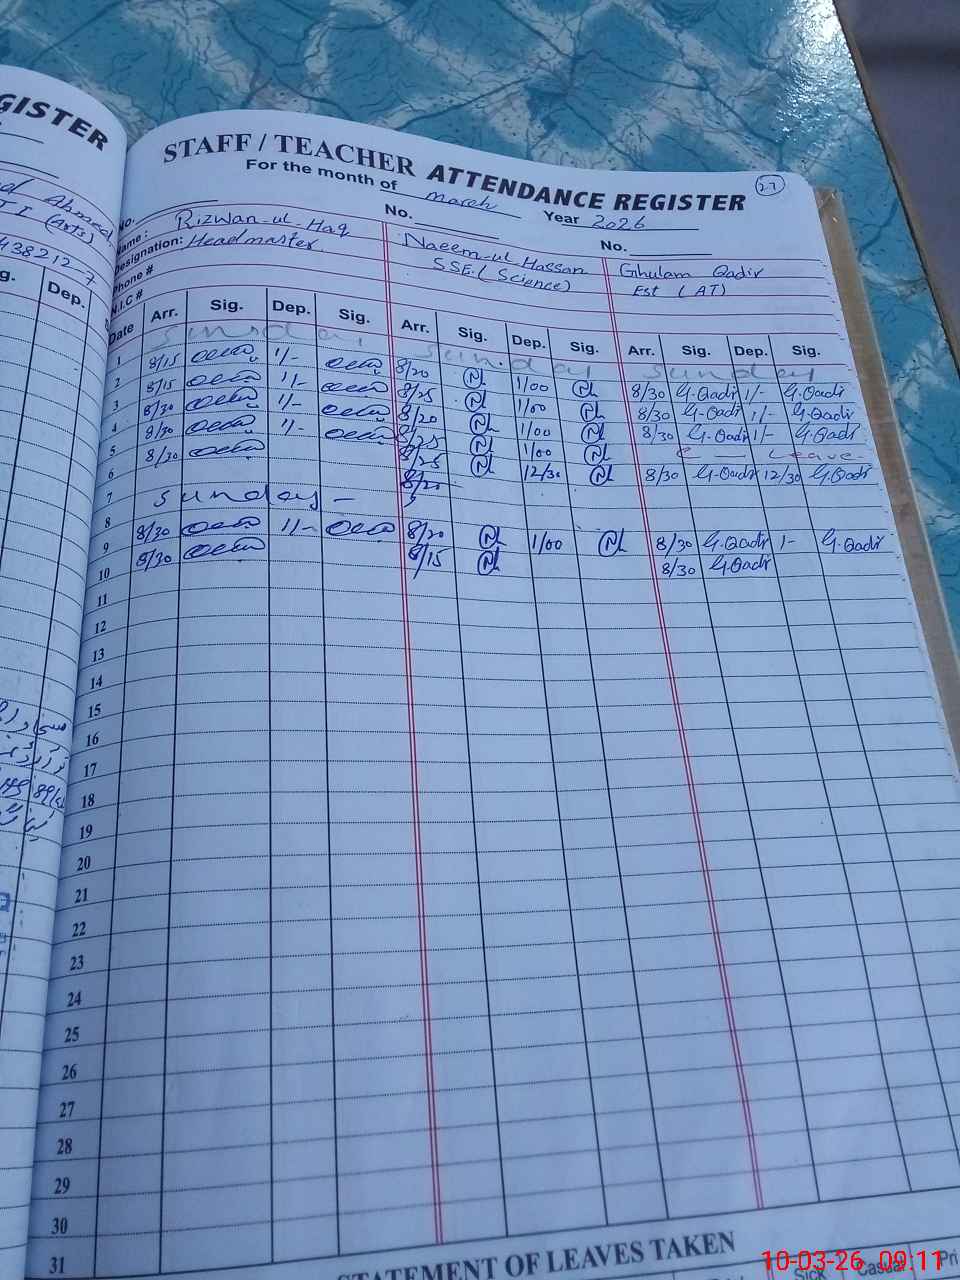 GISTER
STAFF / TEACHER ATTENDANCE REGISTER
27
For the month of march Year 2026
No. No. No.
Name: Rizwan-ul-Haq Naeem-ul Hassan Ghulam Qadir
Designation: Headmaster SSE.(Science) Est (AT)
Phone #
N.I.C #
438212-7
g. Dep.
Date Arr. Sig. Dep. Sig. Arr. Sig. Dep. Sig. Arr. Sig. Dep. Sig.
1 sunday sunday sunday
2 8/15 1/- 8/20 1/00 8/30 G.Qadir 1/- G.Qadir
3 8/15 1/- 8/25 1/00 8/30 G.Qadir 1/- G.Qadir
4 8/30 1/- 8/20 1/00 8/30 G.Qadir 1/- G.Qadir
5 8/30 1/- 8/25 1/00 Leave
6 8/30 8/25 12/30 8/30 G.Qadir 12/30 G.Qadir
7
8 sunday
9 8/30 1/- 8/20 1/00 8/30 G.Qadir 1- G.Qadir
10 8/30 8/15 8/30 G.Qadir
11
12
13
14
15
16
17
18
19
20
21
22
23
24
25
26
27
28
29
30
31
STATEMENT OF LEAVES TAKEN
Sick Casual Pri
10-03-26 09:11